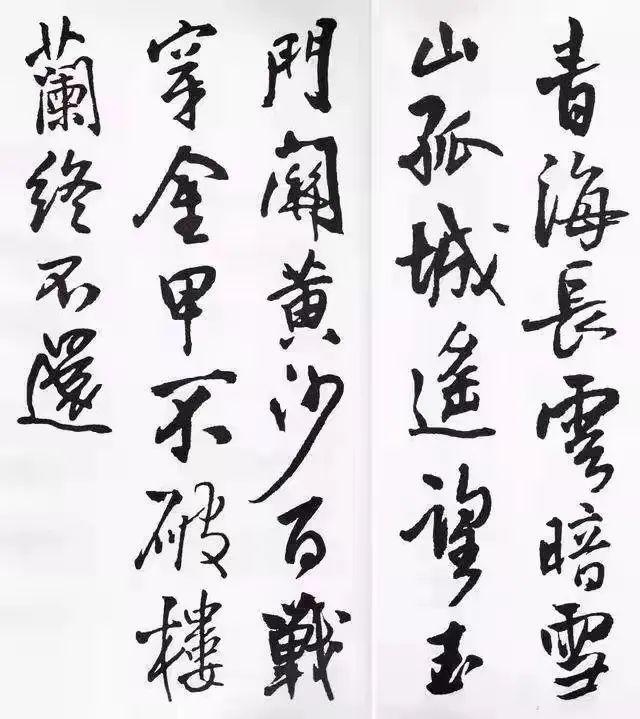 青海長雲暗雪
山孤城遙望玉
門關黄沙百戰
穿金甲不破樓
蘭終不還